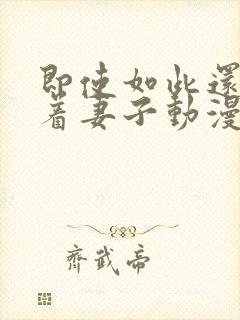 即使如此還
着妻子動漫
齊武帝